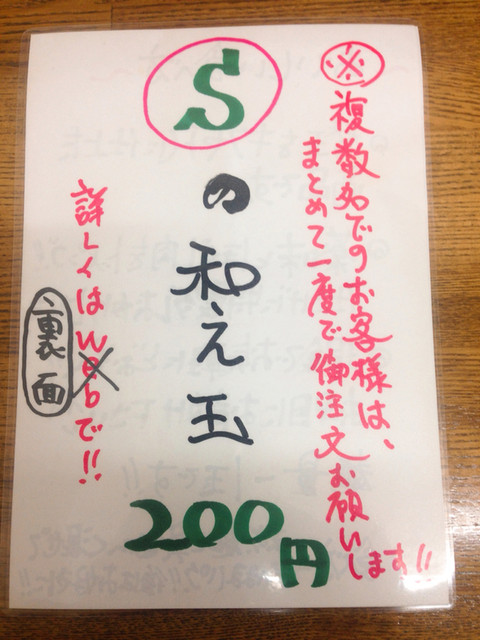 ※複数名でのお客様は、
まとめて一度で御注文お願いします!!
Sの和え玉
200円
詳しくはWebで!!
裏面